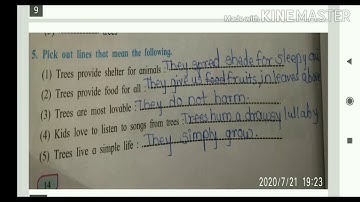 9
Made with KINEMASTER
5. Pick out lines that mean the following.
(1) Trees provide shelter for animals They spread shade for sleepy
(2) Trees provide food for all : They give us food fruits, in leaves above
(3) Trees are most lovable : They do not harm.
(4) Kids love to listen to songs from trees Trees hum a drowsy lullaby
(5) Trees live a simple life : They simply grow.
14
2020/7/21 19:23